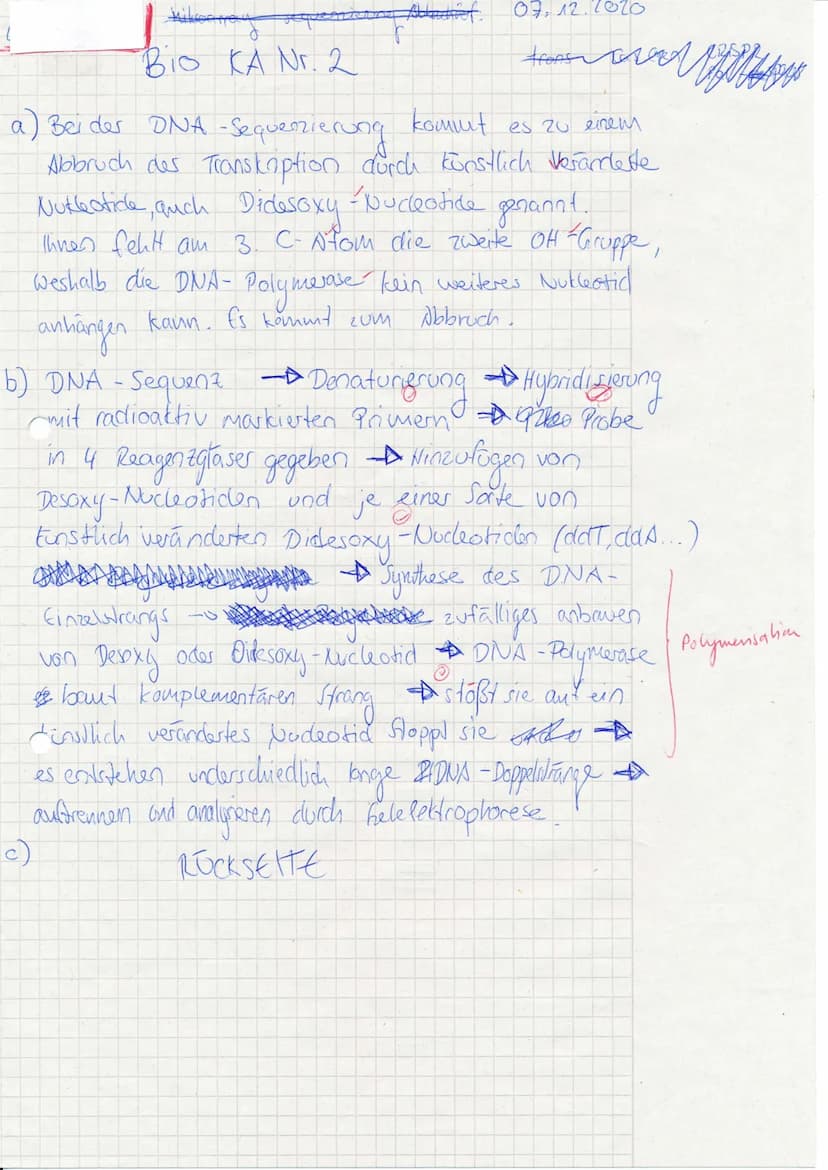 07.12.2020
Bio KA Nr. 2
a) Bei der DNA-Sequenzierung kommt es zu einem
Abbruch der Transkription durch künstlich veränderte
Nukleotide, auch Didesoxy-Nucleotide genannt.
Ihnen fehlt am 3. C-Atom die zweite OH-Gruppe,
weshalb die DNA-Polymerase kein weiteres Nukleotid
anhängen kann. Es kommt zum Abbruch.
b) DNA-Sequenz → Denaturierung → Hybridisierung
mit radioaktiv markierten Primern → Probe
in 4 Reagenzgläser gegeben → Hinzufügen von
Desoxy-Nucleotiden und je einer Sorte von
künstlich veränderten Didesoxy-Nucleotiden (ddT, ddA...)
→ Synthese des DNA-
Einzelstrangs → zufälliges anbauen
von Desoxy oder Didesoxy-Nucleotid → DNA-Polymerase
baut komplementären Strang → stößt sie auf ein
künstlich verändertes Nucleotid stoppt sie →
es entstehen underschiedlich lange DNA-Doppelstränge →
auftrennen und analysieren durch Gelelektrophorese.
Polymerisation
c) RÜCKSEITE